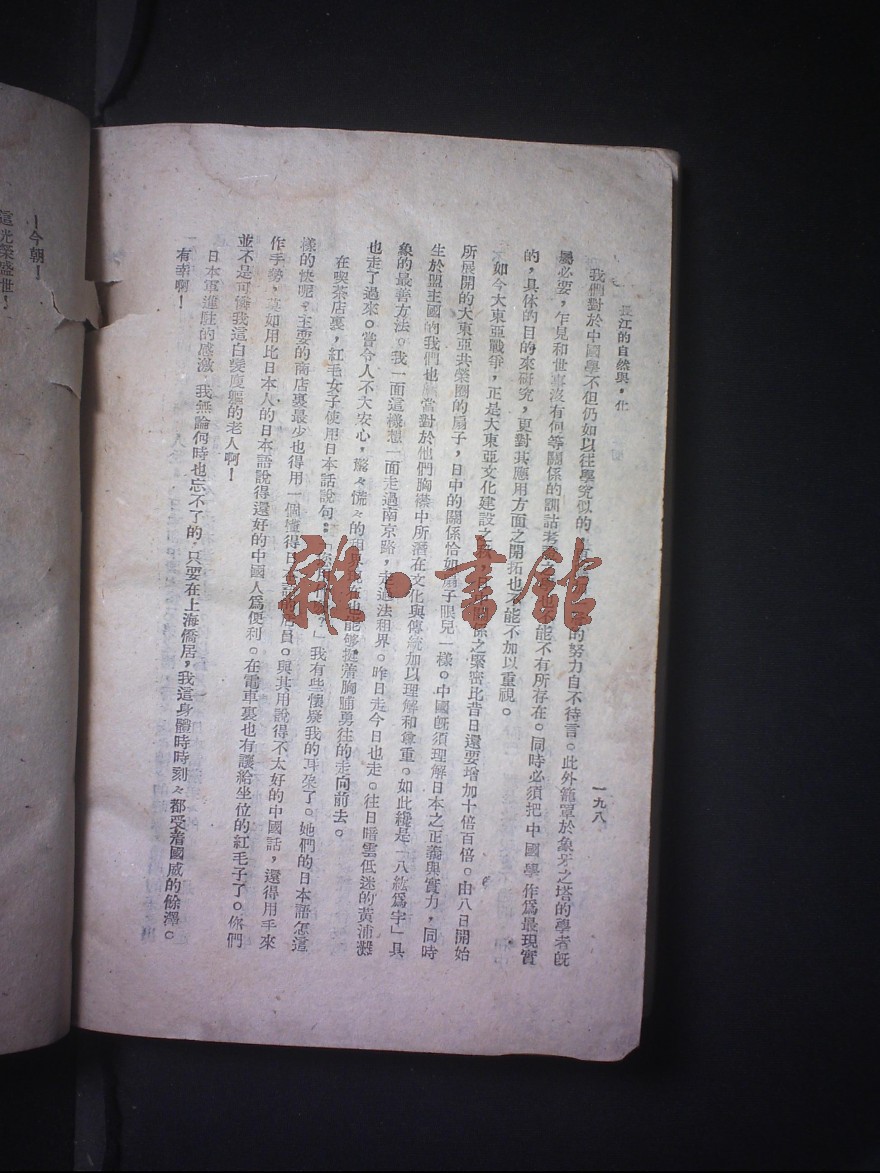 長江的自然與,化
一九八
我們對於中國學不但仍如以往學究似的 的努力自不待言。此外籠罩於象牙之塔的學者旣
屬必要,乍見和世事沒有何等關係的訓詁考 能不有所存在。同時必須把中國學作爲最現實
的,具体的目的來研究,更對其應用方面之開拓也不能不加以重視。
如今大東亞戰爭,正是大東亞文化建設之 係之緊密比昔日還要增加十倍百倍。由八日開始
所展開的大東亞共榮圈的扇子,日中的關係恰如扇子眼兒一樣。中國旣須理解日本之正義與實力,同時
生於盟主國的我們也應當對於他們胸襟中所潛在文化與傳統加以理解和尊重。如此纔是「八紘爲宇」具
象的最善方法。我一面這樣想一面走過南京路,走過法租界。昨日走今日也走。往日暗雲低迷的黃浦灘
也走了過來。當令人不大安心,驚々慌々的租界 也能够挺着胸脯勇往的走向前去。
在喫茶店裏,紅毛女子使用日本話說句:「 」我有些懷疑我的耳朶了。她們的日本語怎這
樣的快呢。主要的商店裏最少也得用一個懂得日本語的店員。與其用說得不太好的中國話,還得用手來
作手勢,莫如用比日本人的日本語說得還好的中國人爲便利。在電車裏也有讓給坐位的紅毛子了。你們
並不是可憐我這白髮廋軀的老人啊!
日本軍進駐的感激 我無論何時也忘不了的 只要在上海僑居,我這身體時時刻々都受着國威的餘澤。
有幸啊!
—今朝!
這光榮盛世!
雜·書館